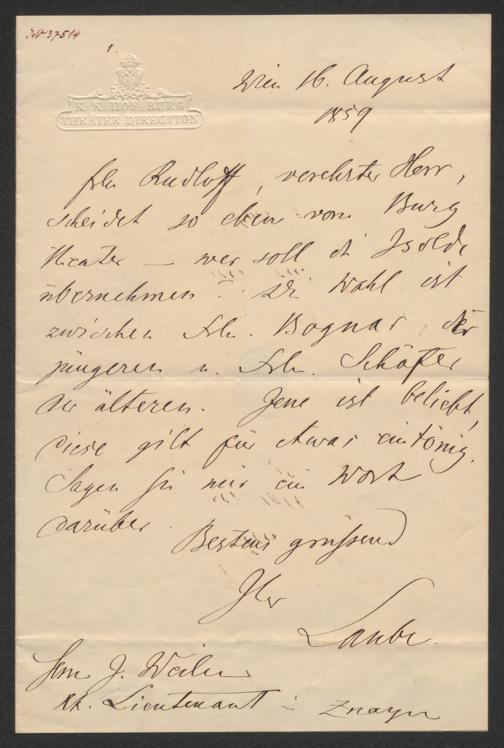 N 37514
1.
K. K. HOF-BURG
THEATER DIRECTION
Wien 16. August
1859
Frln Rudloff, verehrter Herr,
scheidet so eben vom Burg
theater — wer soll die Isolde
übernehmen? Die Wahl ist
zwischen Frln. Bognar, der
jüngeren u. Frln. Schäfer
der älteren. Jene ist beliebt,
diese gilt für etwas eintönig.
Sagen Sie mir ein Wort
darüber.
Bestens grüssend
Ihr
Laube.
Herrn J. Weilen
KK. Lieutenant in Znaym